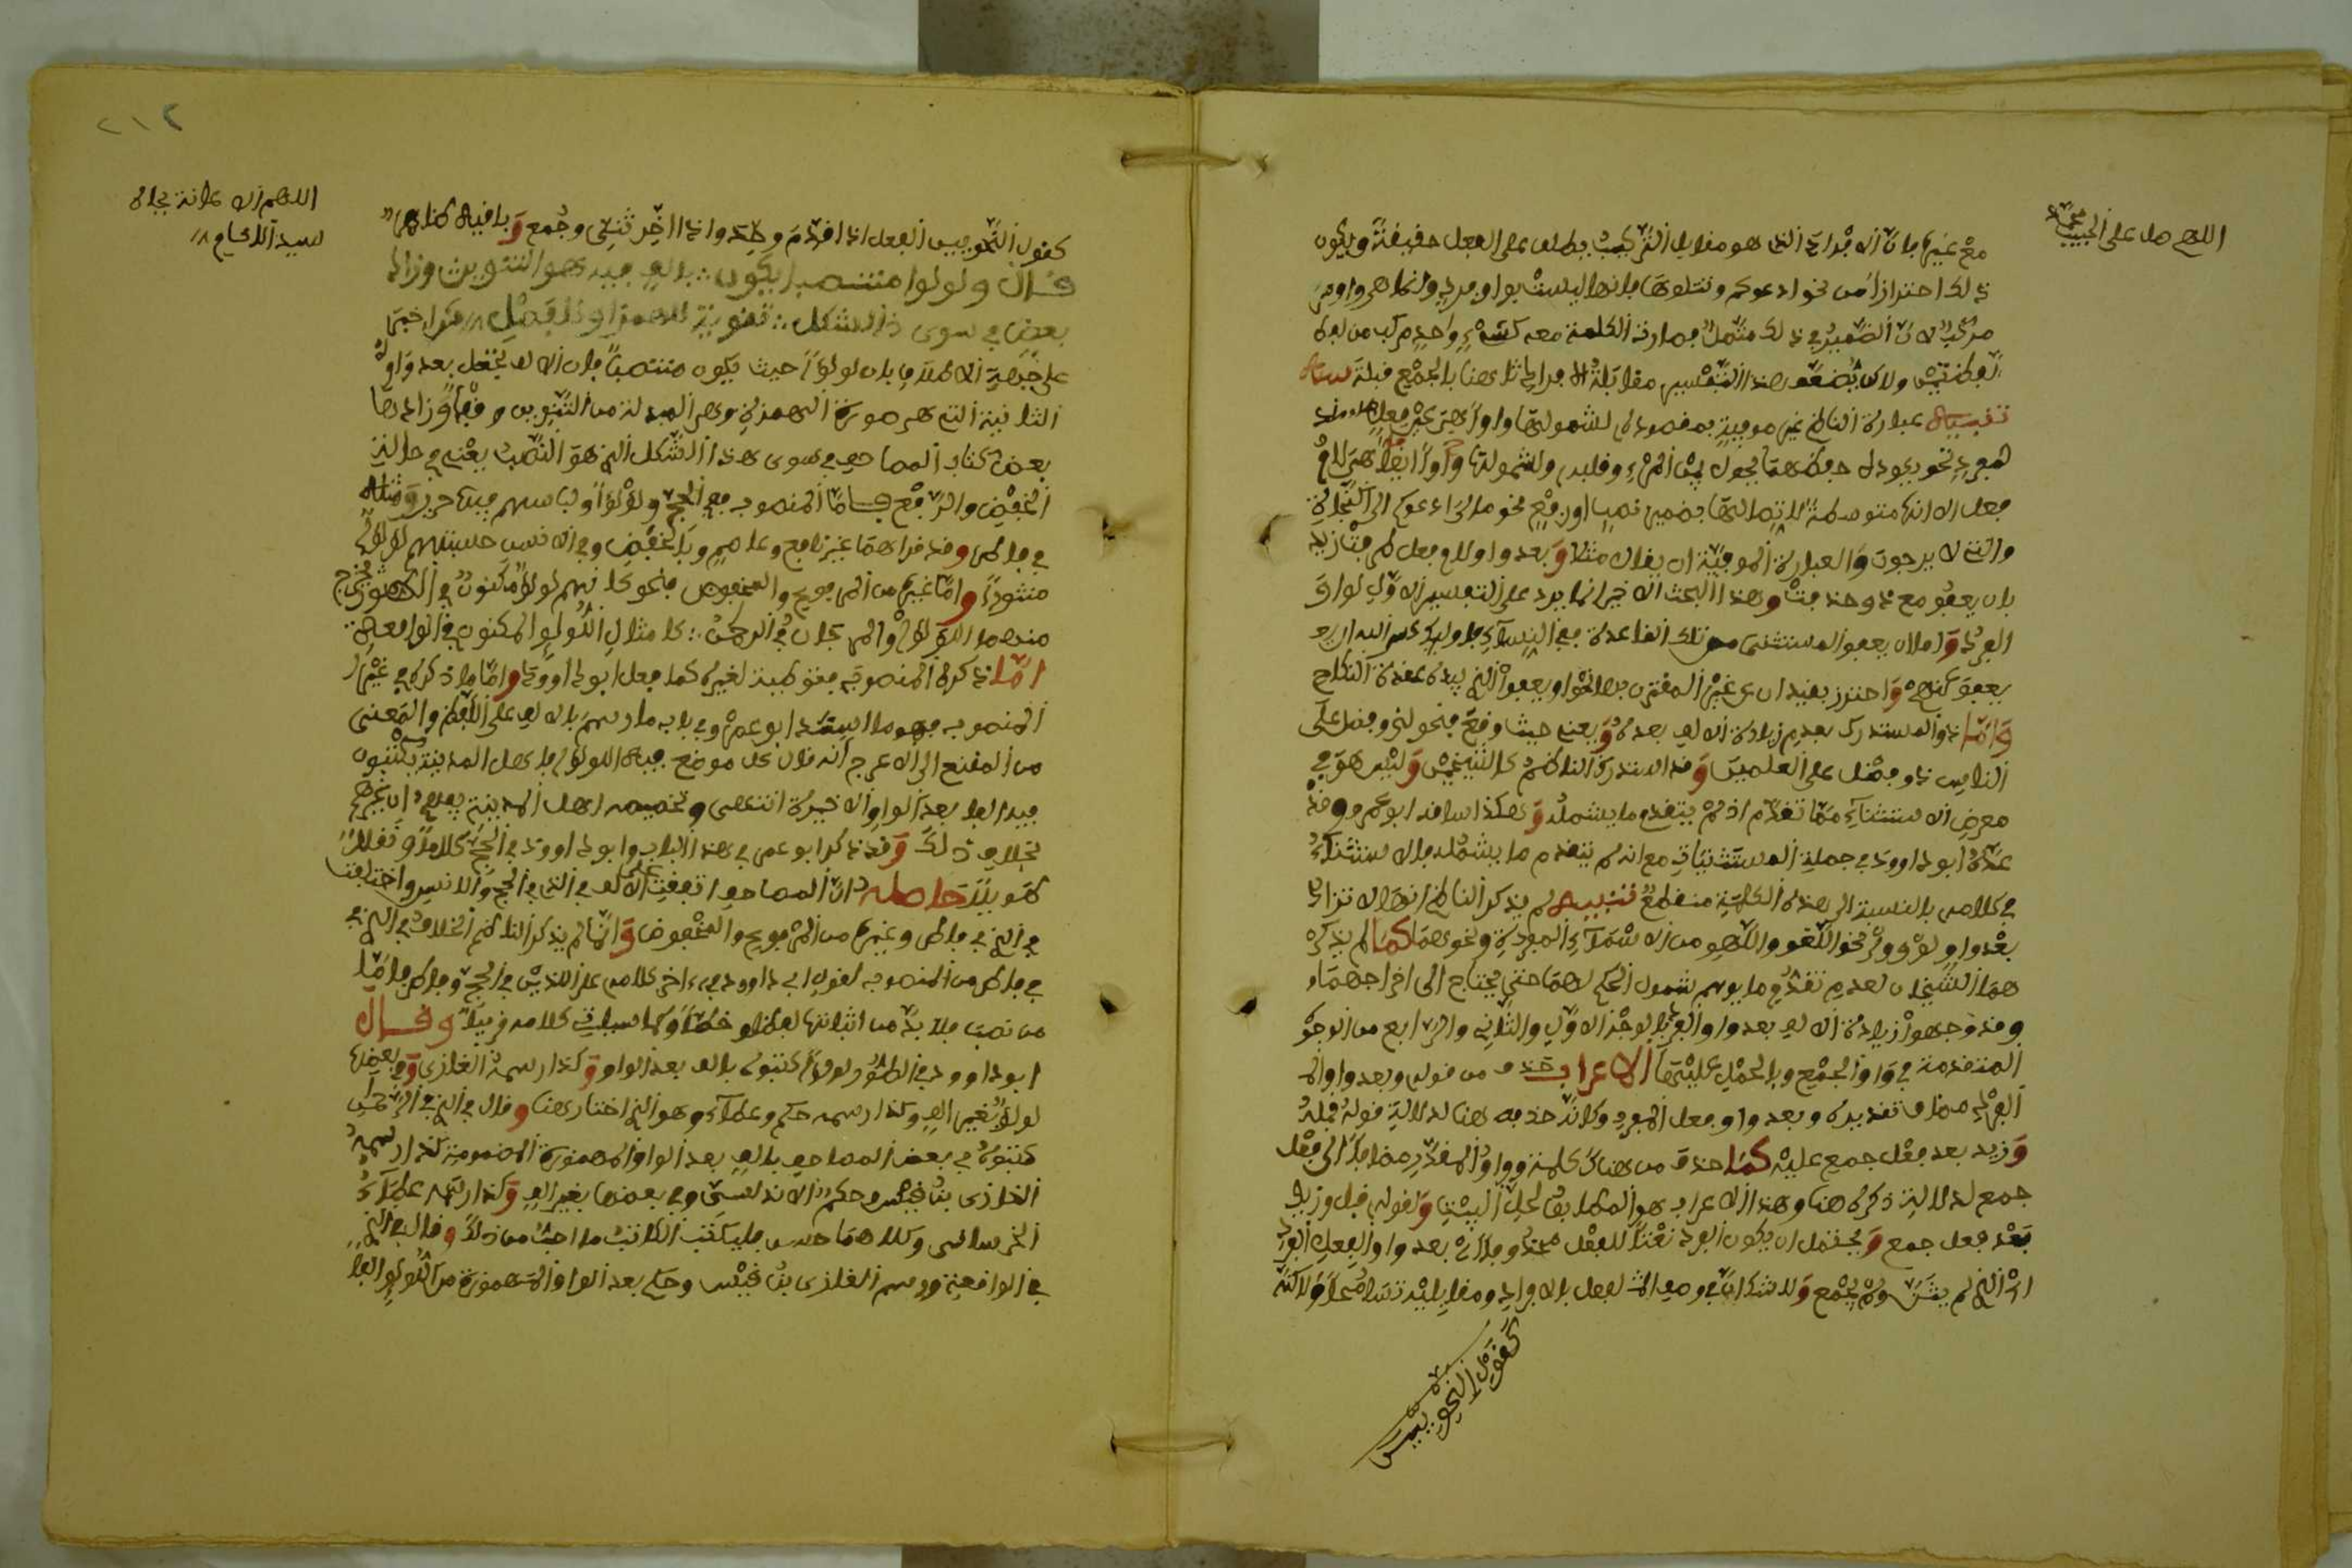 اللهم صل على الحبيب محمد
مع غيرها فان الافراد الذي هو مقابل التركيب يطلق على الفعل حقيقة ويكون
ذلك احترازا من نحو ادعوكم ونتلوها فانها ليست بواو فرد وانما هي واو من
مركب لان الضمير في ذلك متصل فصارت الكلمة معه كشيء واحد مركب من
لفظتين ولاكن يضعف هذا التفسير مقابلة الافراد ثلا هنا بالجمع قبله
تنبيه عبارة الناظم غير موفية بمقصوده لشمولها واوا هي عين فعل
لمفرد نحو يحول بين المرء وقلبه ولشمولها واوا ايضا هي لام
فعل الا انها متوسطة
والتي لا يرجون والعبارة الموفية ان يقال مثلا وبعد واو لام فعل
بان يعفو مع ذو حذفت وهذا البحث الاخير انما يرد على التفسير الاول لواو
الفرد وقاملان يعفو المستثنى من تلك القاعدة ففي النساء فاوليك عسى الله ان
يعفو عنهم واحترز بقيد ان عن غير المقترن بها نحو او يعفو الذي بيده عقدة النكاح
واما ذو المستدرك بعدم زيادة الالف بعده ويعني حيث وقع فنحو لذو فضل على
الناس ذو فضل على العلمين وقد استدركه الناظم كالشيخين وليس هو في
معرض الاستثناء مما تقدم اذ لم يتقدم ما يشمله وهكذا ساقه ابو عمرو وقد
عده ابو داوود في جملة المستثنيات مع انه لم يتقدم ما يشمله فالاستثناء
في كلامه بالنسبة الى هذه الكلمة منقطع تنبيه لم يذكر الناظم انها لا تزاد
بعد واو نحو اللغو واللهو من الاسماء المفردة ونحوهما كما لم يذكره
هما الشيخان لعدم تقدم ما يوهم شمول الحكم لهما حتى يحتاج الى اخراجهما
وقد وجهوا زيادة الالف بعد واو الفرد بالوجه الاول والثاني والرابع من الوجوه
المتقدمة في واو الجمع وبالحمل عليها الاعراب حذف من قوله وبعد واو
الفرد مضاف تقديره وبعد واو فعل المفرد وكانه حذفه هنا لدلالة قوله قبله
وزيد بعد فعل جمع عليه كما حذف من هناك كلمة واو المقدر مضافا الى فعل
جمع لدلالة ذكره هنا وهذا الاعراب هو المطابق لحل البيت ولقوله قبل وزيد
بعد فعل جمع ويحتمل ان يكون الفرد نعتا للفعل محذوفا اي بعد واو الفعل الفرد
اي الذي لم يثن ولم يجمع ولا شك ان في وصف الفعل بالافراد ومقابليه تسامحا ولاكنه
كقول النحويين
٢١٢
اللهم الاعانة بجاه
سيد الانام
كقول النحويين الفعل اذا قدم وحد واذا اخر ثني وجمع وباقيه ظاهر
قال ولولوا منتصبا يكون ∴ بالف فيه هو التنوين وزاد
بعض في سوى ذا الشكل ∴ تقوية للهمز او للفصل اخبر
على جهة الاطلاق بان لولؤا حيث يكون منتصبا فان الالف تجعل بعد واوه
الثانية التي هي صورة الهمزة وهي المبدلة من التنوين وقفا وزادها
بعض كتاب المصاحف في سوى هذا الشكل الذي هو النصب يعني في حالتي
الخفض والرفع فاما المنصوب ففي الحج ولؤلؤا ولباسهم فيها حرير ومثله
في فاطر وقد قراهما غير نافع وعاصم بالخفض وفي الانسن حسبتهم لؤلؤا
منثورا واما غيره من المرفوع والمخفوض فنحو كانهم لؤلؤ مكنون في الطور يخرج
منهما اللؤلؤ والمرجان في الرحمن كامثل اللؤلؤ المكنون في الواقعة
اما ذكره المنصوب فتوطية لغيره كما فعل ابو داوود واما ما ذكره في غير
المنصوب فهو ما اسنده ابو عمرو في باب ما رسم بالالف على اللفظ والمعنى
من المقنع الى الاعرج انه قال كل موضع فيه اللؤلؤ فاهل المدينة يكتبون
فيه الفا بعد الواو الاخيرة انتهى وتخصيصه اهل المدينة يفيد ان غيرهم
بخلاف ذلك وقد ذكر ابو عمرو في هذا الباب وابو داوود في الحج كلاما ونقلا
طويلا حاصله ان المصاحف اتفقت على الالف في الذي في الحج والانسن واختلفت
في الذي في فاطر وغيره من المرفوع والمخفوض وانما لم يذكر الناظم الخلاف في الذي
في فاطر من المنصوب لقول ابي داوود في اخر كلامه على اللذين في الحج وفاطر فاما
من نصب فلا بد من اثباتها لفظا وخطا وكما سياتي كلامه قريبا وقال
ابو داوود في الطور لؤلؤ كتبوه بالف بعد الواو وكذا رسمه الغازي وفي بعضها
لؤلؤ بغير الف وكذا رسمه حكم وعطاء وهو الذي اختار هنا وقال في الذي في الرحمن
كتبوه في بعض المصاحف بالف بعد الواو المهموزة المضمومة كذا رسمه
الغازي بن قيس وحكم الاندلسي وفي بعضها بغير الف وكذا رسمه عطاء
الخرساني وكلاهما حسن فليكتب الكاتب ما احب من ذلك وقال في الذي
في الواقعة ورسم الغازي بن قيس وحكم بعد الواو المهموزة من اللؤلؤ الفا